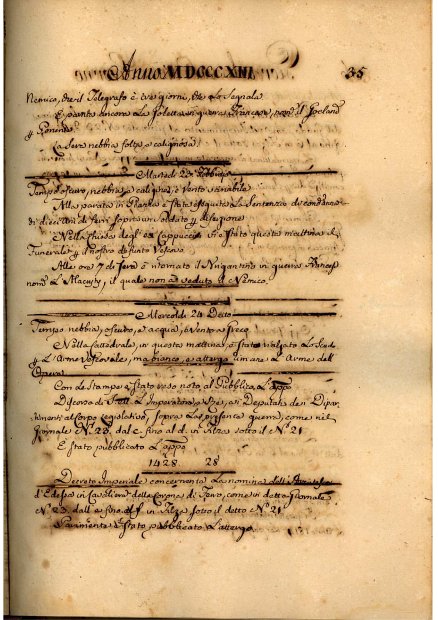 Anno MDCCCXIII 35
Nemico, che il Telegrafo è tre giorni, che Lo Segnala
E partita ancora La Goletta in guerra Francese, nom.
y Ponente
La sera nebbia folta, e caliginosa
Martedì 23 Febbraio
Tempo oscuro, nebbia, e caligine, e Vento variabile
Alla parata in è stata eseguita La Sentenza di condanna
di dieci Anni di ferri sopra un Soldato y diserzione
Nella Chiesa degl' ex Cappuccini vi è stato questa mattina il
Funerale y il nostro defunto Vescovo
Alle ore 7 di sera è ritornato il Brigantino in guerra Francese
nom. il quale non à veduto il Nemico.
Mercoledì 24 Detto
Tempo nebbia, oscuro, e acqua, e Vento a
Nella Cattedrale, in questa mattina, è stato Lo Scudo
y L'Arme Vescovile, ma bianco, e attergo un'are L'Arme dell'
Opera
Con Le Stampe è stato reso noto al Pubblico, L'app.
Discorso di S. M. L'Imperatore, e Rè, ai Deputati de' Dipar
timenti al Corpo Legislativo, sopra La presente guerra, come nel
Giornale N.º 23. dal c. fino al d. in Filza sotto il N.º 21
E stato pubblicato L'app.
1428 28
Decreto Imperiale concernente La nomina dell'
d'Edesso in Cavaliere della Corona di Ferro, come in detto Giornale
N.º 23. dall' e. fino all' f. in Filza sotto il detto N.º 21
Parimente è stato pubblicato L'attergo